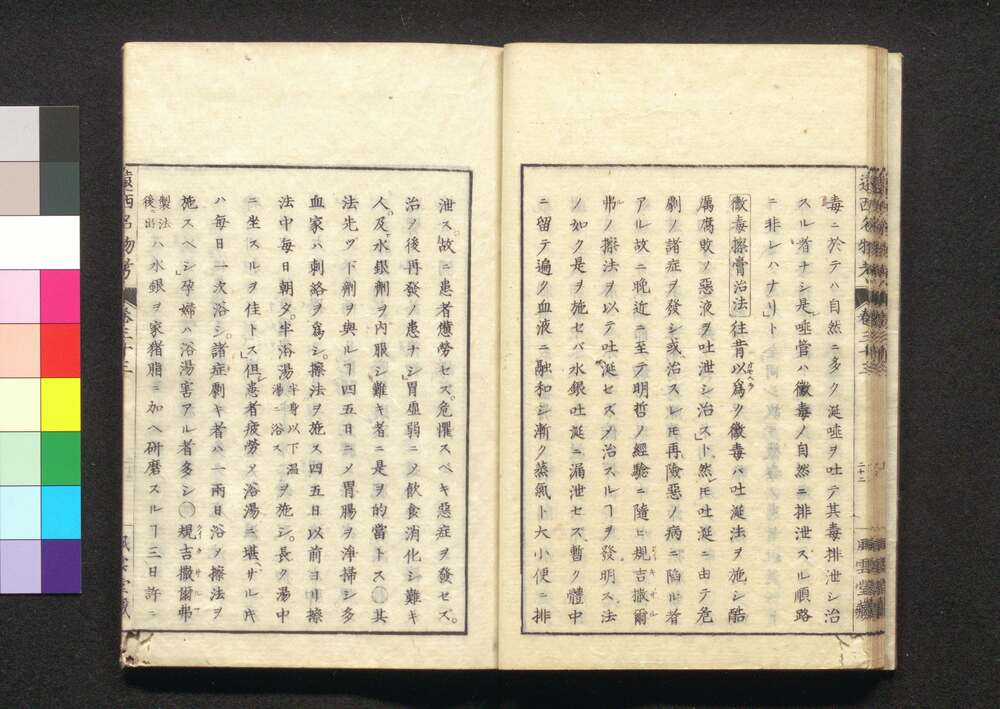 毒ニ於テハ自然ニ多ク涎唾ヲ吐テ其毒排泄シ治
スル者ナシ是唾管ハ黴毒ノ自然ニ排泄スル順路
ニ非レハナリト
黴毒擦膏治法 往昔以爲ク黴毒ハ吐涎法ヲ施シ酷
厲腐敗ノ惡液ヲ吐泄シ治スト然𪜈吐涎ニ由テ危
劇ノ諸症ヲ發シ或治スレ𪜈再險惡ノ病ニ陷ル者
アル故ニ晩近ニ至テ明哲ノ經驗ニ隨ヒ規吉撒爾
弗ノ擦法ヲ以テ吐涎セズ〆治スルヿヲ發明ス法
ノ如ク是ヲ施セバ水銀吐涎ニ漏泄セズ暫ク體中
ニ留テ遍ク血液ニ融和シ漸ク蒸氣ト大小便ニ排
遠西名物考 卷三十三
泄ス故ニ患者憊勞セズ危懼スベキ惡症ヲ發セズ
治ノ後再發ノ患ナシ胃虚弱ニ〆飮食消化シ難キ
人及水銀劑ヲ内服シ難キ者ニ是ヲ的當トス○其
法先ヅ下劑ヲ與ルヿ四五日ニ〆胃腸ヲ淨掃シ多
血家ハ刺絡ヲ爲シ擦法ヲ施ス四五日以前ヨリ擦
法中毎日朝夕半浴湯 半身以下温湯ニ浴ス ヲ施シ長ク湯中
ニ坐スルヲ佳トス但患者疲勞〆浴湯ニ堪ザルキ
ハ毎日一次浴シ諸症劇キ者ハ一兩日浴〆擦法ヲ
施スベシ孕婦ハ浴湯害アル者多シ○規吉撒爾弗
製法後出 ハ水銀ヲ家猪脂ニ加ヘ研磨スルヿ三日許ニ